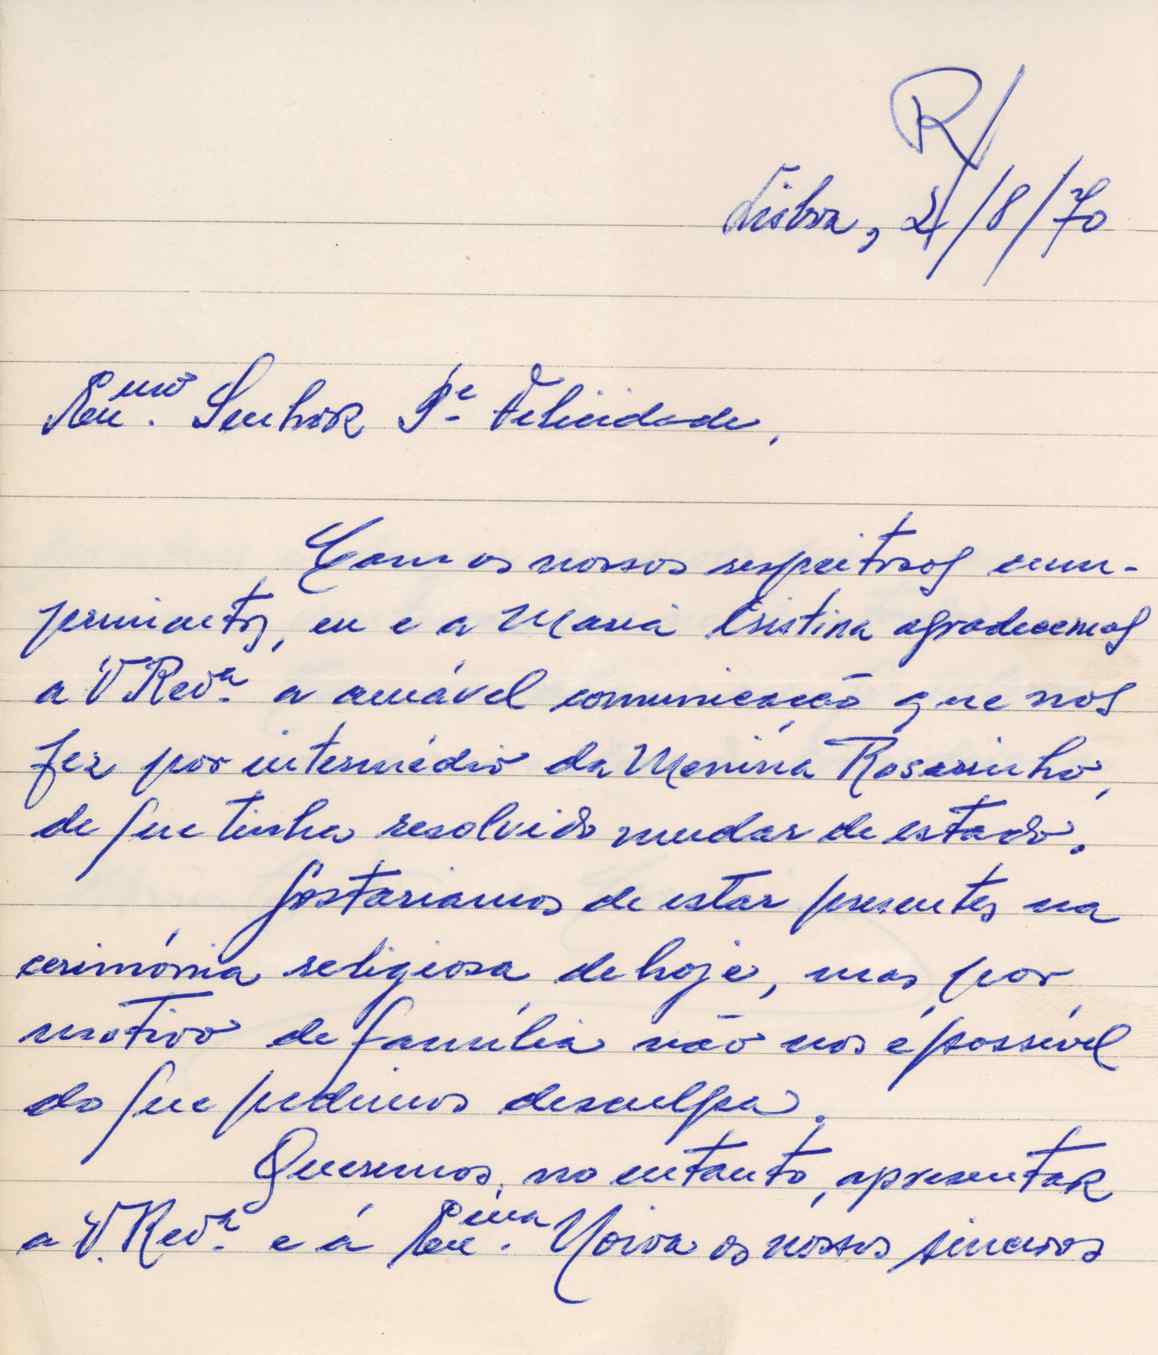 R/
Lisboa, 2/8/70
Exmo. Senhor Pe Felicidade,
Com os nossos respeitosos cum-
primentos, eu e a Maria Cristina agradecemos
a V Reva. a amável comunicação que nos
fez por intermédio da Menina Rosarinho,
de que tinha resolvido mudar de estado.
Gostariamos de estar presentes na
cerimónia religiosa de hoje, mas por
motivo de família não nos é possível
do que pedimos desculpa.
Queremos, no entanto, apresentar
a V. Reva. e á Exma. Noiva os nossos sinceros